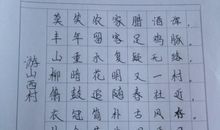 游山西村
莫笑农家腊酒浑，
丰年留客足鸡豚。
山重水复疑无路，
柳暗花明又一村。
箫鼓追随春社近，
衣冠简朴古风存。